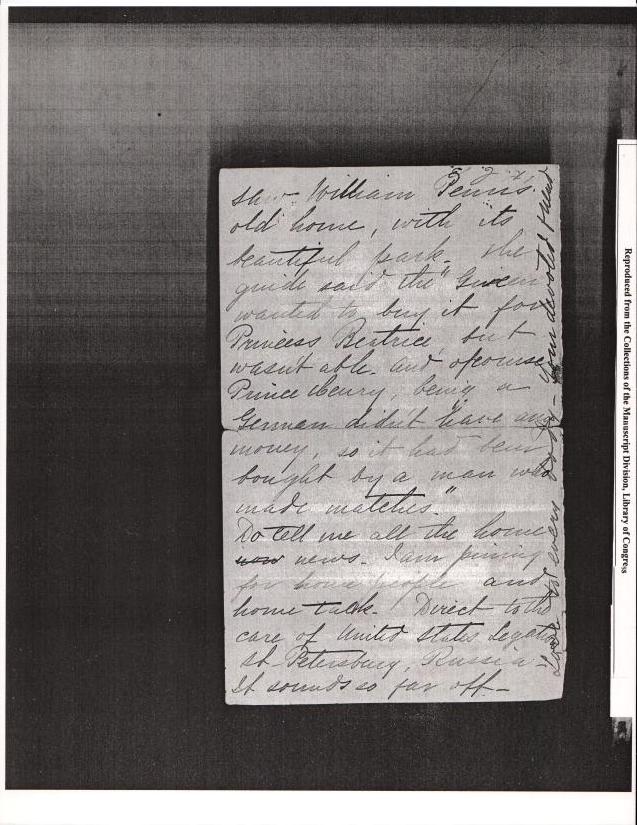 saw William Penn's
old home, with its
beautiful park. The
guide said the "Queen
wanted to buy it for
Princess Beatrice, but
wasn't able. and ofcourse
Prince Henry, being a
German didn't have any
money, so it had been
bought by a man who
made matches."
Do tell me all the home
now news. I am pining
for home people and
home talk. Direct to the
care of United States Legation
St. Petersburg, Russia.
It sounds so far off.—
Love to every body— Your devoted friend
Reproduced from the Collections of the Manuscript Division, Library of Congress